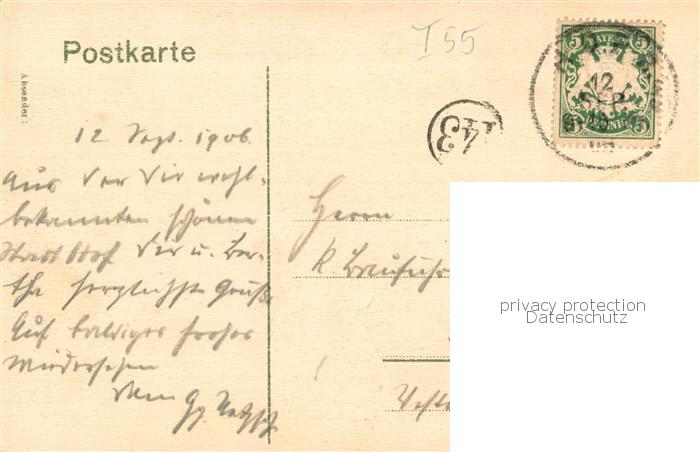 Postkarte
I 55
5 BAYERN 5
5 PFENNIG 5
12
SEP
43
Absender:
12 Sept. 1906
Aus der Dir wohl-
bekannten schönen
Stadt Hof Dir u. Ber-
tha herzlichste Grüße
Auf baldiges frohes
Wiedersehen
Dein Gg.
Herrn
K.
privacy protection
Datenschutz